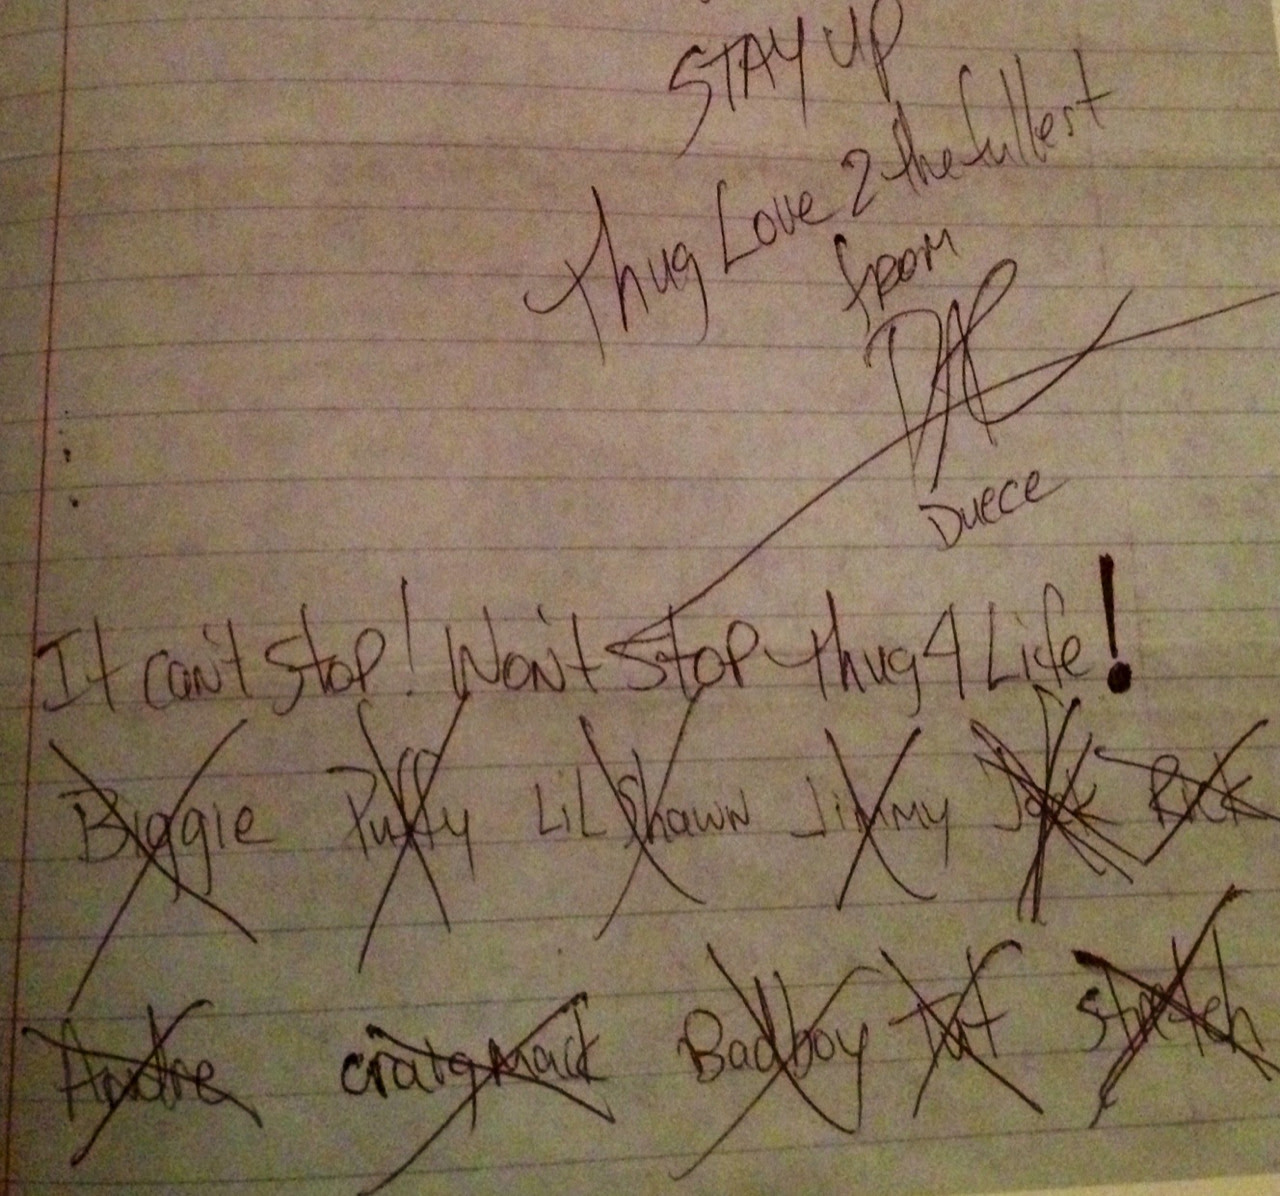 STAY UP
Thug Love 2 the fullest
from
Duece
It can't stop! Won't Stop Thug 4 Life!
Biggie Puffy LiL Shawn Jimmy Jack Rick
Andre craig mack Badboy Tut Stretch